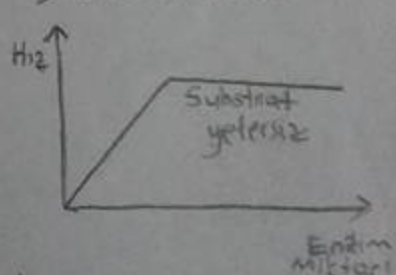 Hız
Substrat
yetersiz
Enzim
Miktarı